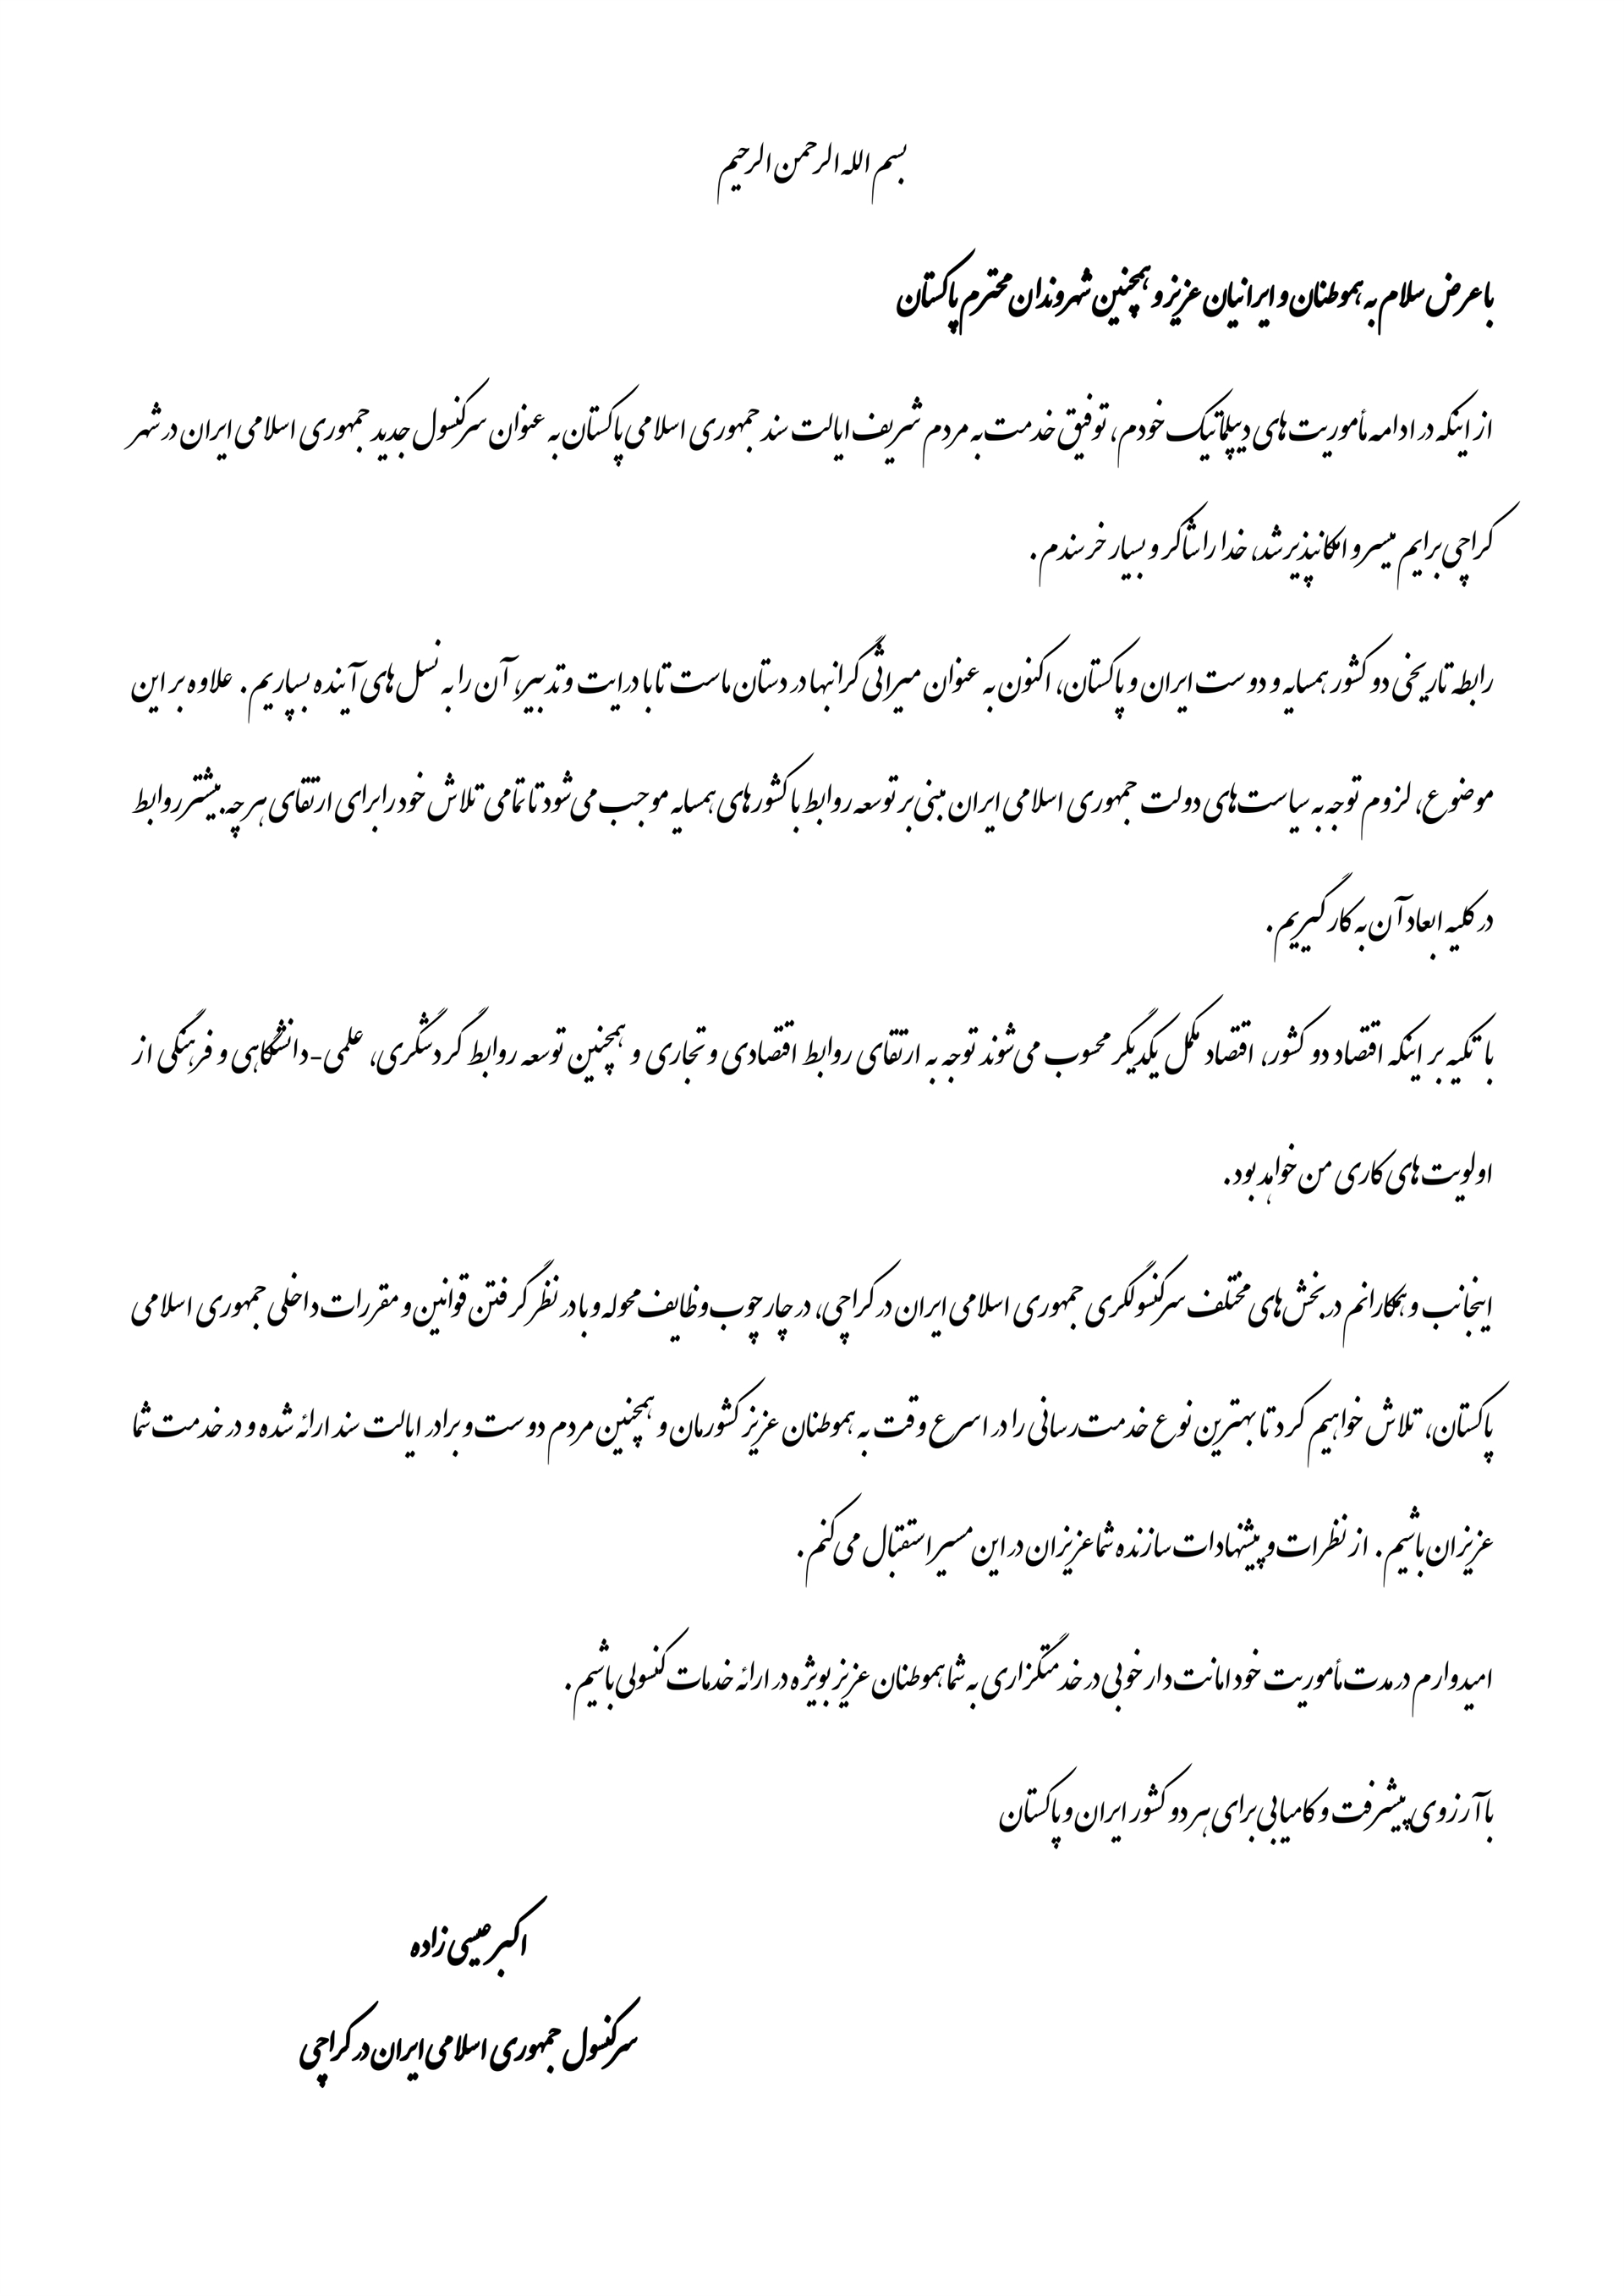 بسم الله الرحمن الرحیم
با عرض سلام به هموطنان و ایرانیان عزیز و همچنین شهروندان محترم پاکستان
از اینکه در ادامه مأموریت های دیپلماتیک خودم، توفیق خدمت به مردم شریف ایالت سند جمهوری اسلامی پاکستان به عنوان سرکنسول جدید جمهوری اسلامی ایران در شهر
کراچی برایم میسر و امکانپذیر شد، خدا را شاکر و بسیار خرسندم.
رابطه تاریخی دو کشور همسایه و دوست ایران و پاکستان، اکنون به عنوان میراثی گرانبها در دستان ماست تا با درایت و تدبیر، آن را به نسل های آینده بسپاریم. علاوه بر این
موضوع، لزوم توجه به سیاست‌های دولت جمهوری اسلامی ایران مبنی بر توسعه روابط با کشورهای همسایه موجب می‌شود تا تمامی تلاش خود را برای ارتقای هرچه بیشتر روابط
در کلیه ابعاد آن به کار گیریم.
با تکیه بر اینکه اقتصاد دو کشور، اقتصاد مکمل یکدیگر محسوب می‌شوند توجه به ارتقای روابط اقتصادی و تجاری و همچنین توسعه روابط گردشگری، علمی-دانشگاهی و فرهنگی از
اولویت های کاری من خواهد بود.
اینجانب و همکارانم در بخش های مختلف سرکنسولگری جمهوری اسلامی ایران در کراچی، در چارچوب وظایف محوله و با در نظر گرفتن قوانین و مقررات داخلی جمهوری اسلامی
پاکستان، تلاش خواهیم کرد تا بهترین نوع خدمت‌رسانی را در اسرع وقت به هموطنان عزیز کشورمان و همچنین مردم دوست و برادر ایالت سند ارائه شده و در خدمت شما
عزیزان باشیم. از نظرات و پیشنهادات سازنده شما عزیزان در این مسیر استقبال می‌کنم.
امیدوارم در مدت مأموریت خود امانت دار خوبی در خدمتگزاری به شما هموطنان عزیز بویژه در ارائه خدمات کنسولی باشیم.
با آرزوی پیشرفت و کامیابی برای هر دو کشور ایران و پاکستان
اکبر عیسی زاده
سرکنسول جمهوری اسلامی ایران در کراچی